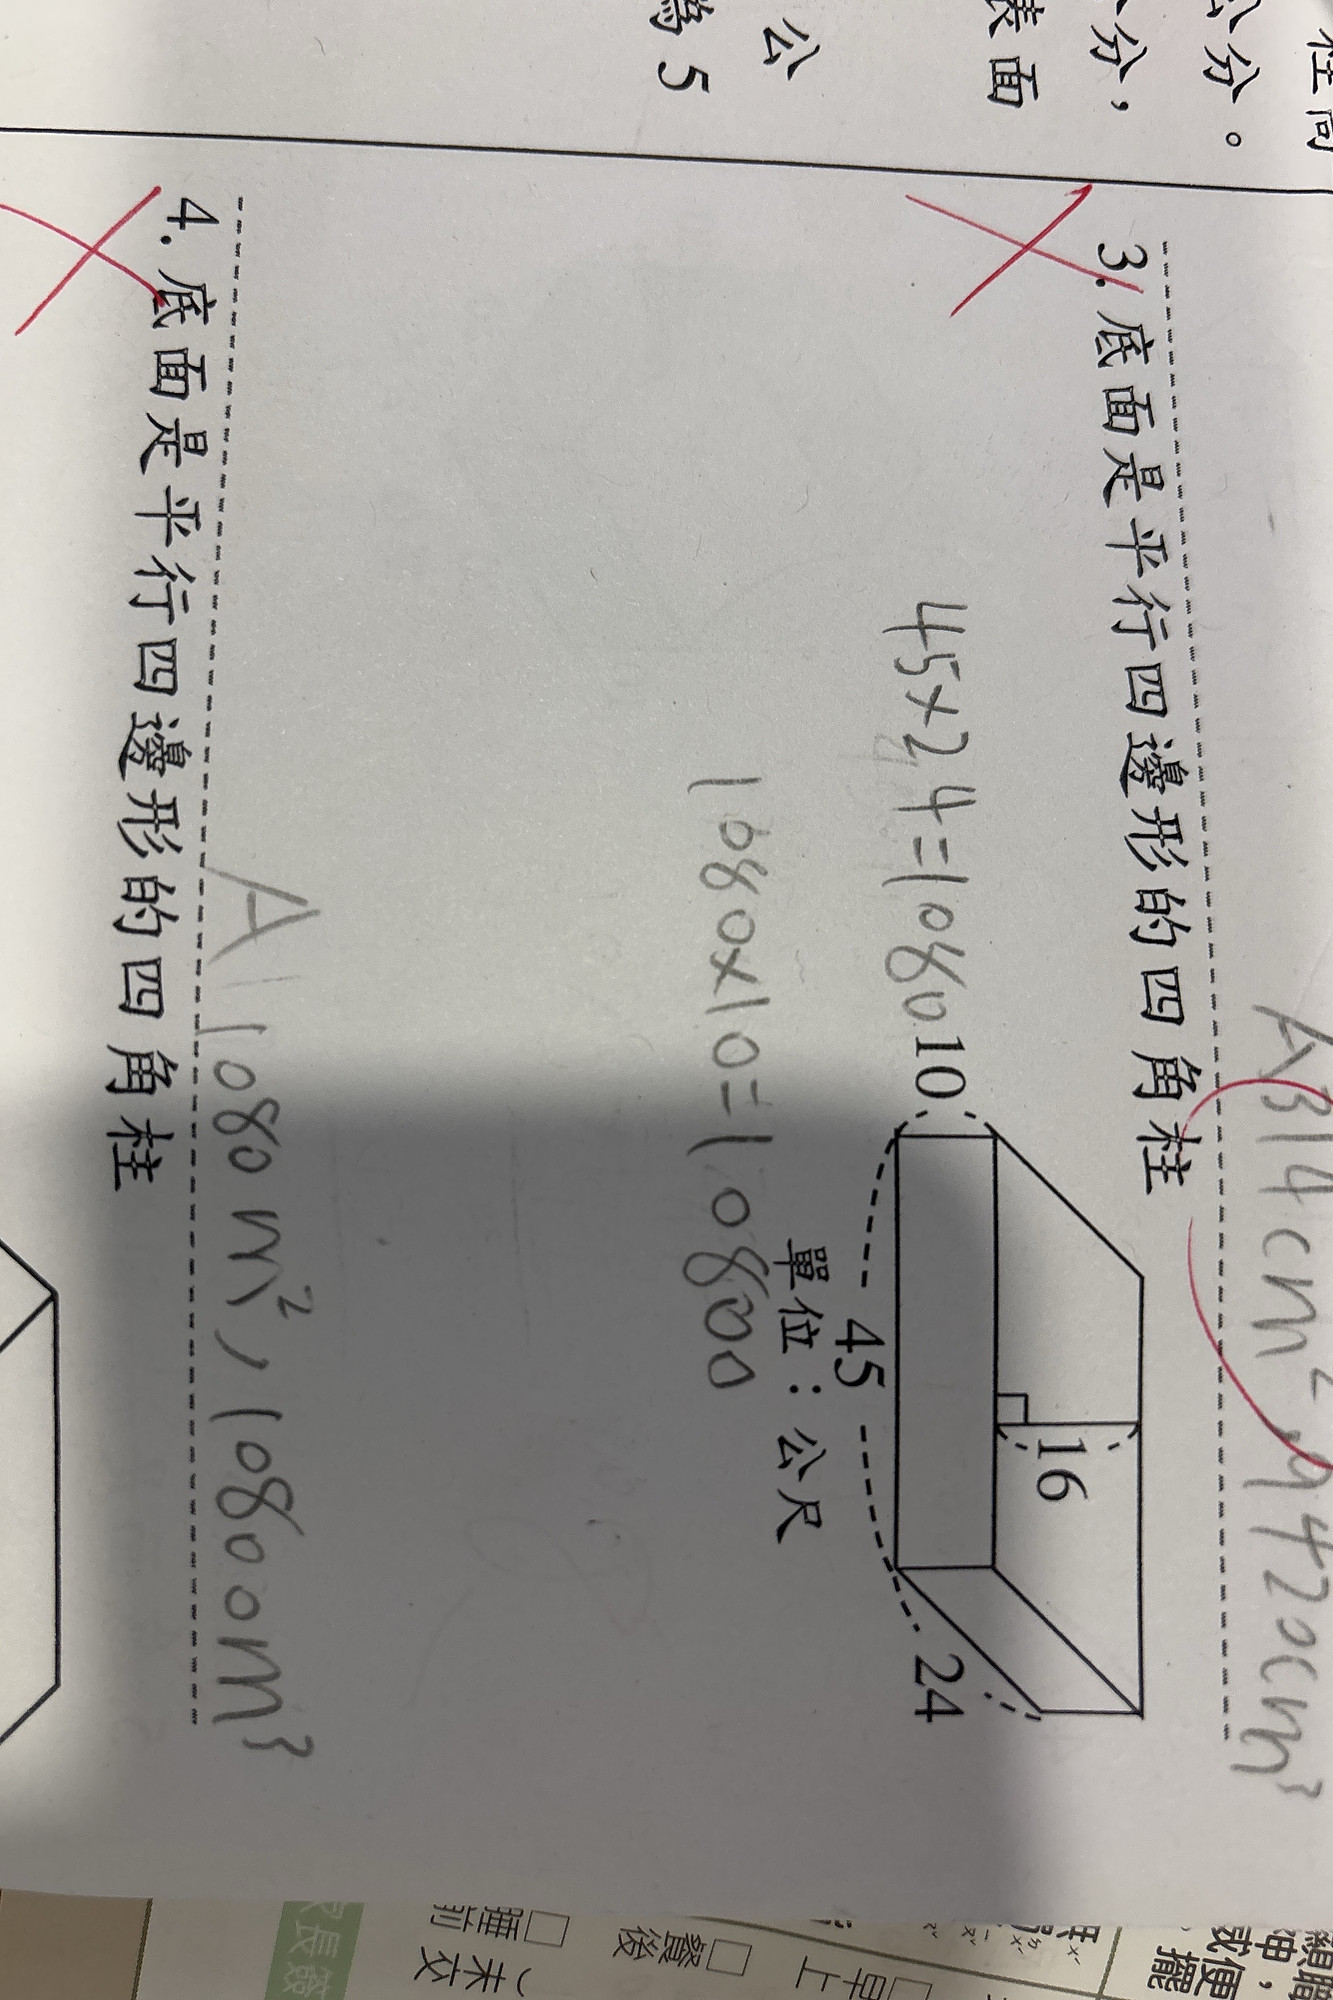 公分。
分,
表面
公
為5
A 314cm², 9420cm³
3. 底面是平行四邊形的四角柱
45×24=1080
1080×10=10800
10
16
45
24
單位：公尺
A 1080m², 10800m³
4. 底面是平行四邊形的四角柱
□早上
□餐後
□睡前
）未交